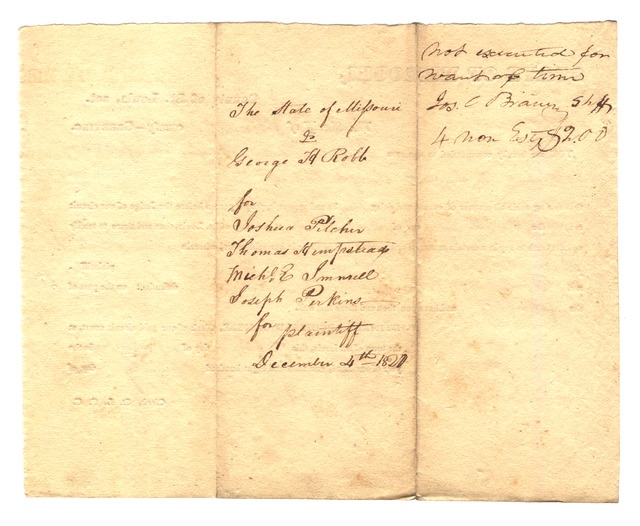 The State of Missouri
vs
George H Robb
for
Joshua Pilcher
Thomas Hempstead
Michl. E Immell
Joseph Perkins
for plaintiff
December 4th 1821
not executed for
want of time
Jos. C Brown Shff
4 non Est $2.00